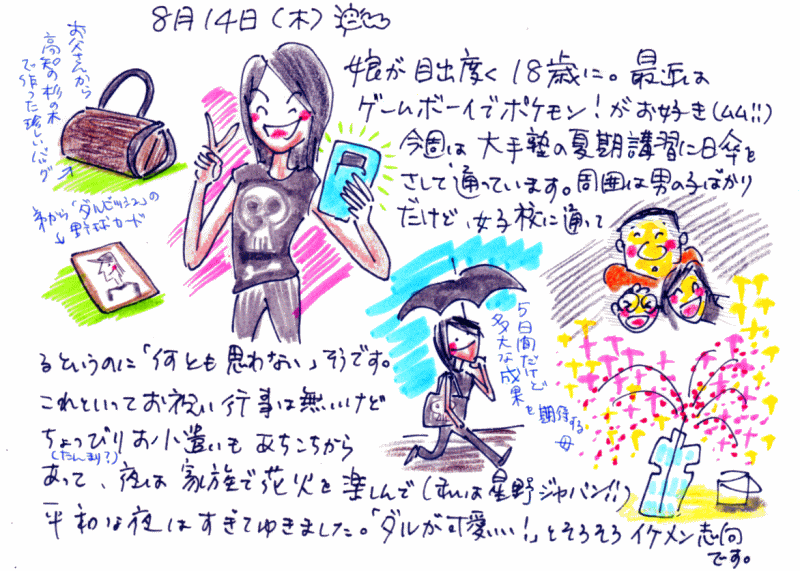 8月14日（木）
お父さんから
高知の杉の木
で作った珍しいバッグ
弟から「ダルビッシュ」の
野球カード
娘が目出度く18歳に。最近は
ゲームボーイでポケモン！がお好き（ムム!!）
今週は大手塾の夏期講習に日傘を
さして通っています。周囲は男の子ばかり
だけど、女子校に通って
5日間だけど
多大な成果
を期待する
母
るというのに「何とも思わない」そうです。
これといってお祝い行事は無いけど
ちょっぴりお小遣いもあちこちから
（たんまり？）
あって、夜は家族で花火を楽しんで（私は星野ジャパン!!）
平和な夜はすぎてゆきました。「ダルが可愛いい！」とそろそろイケメン志向
です。